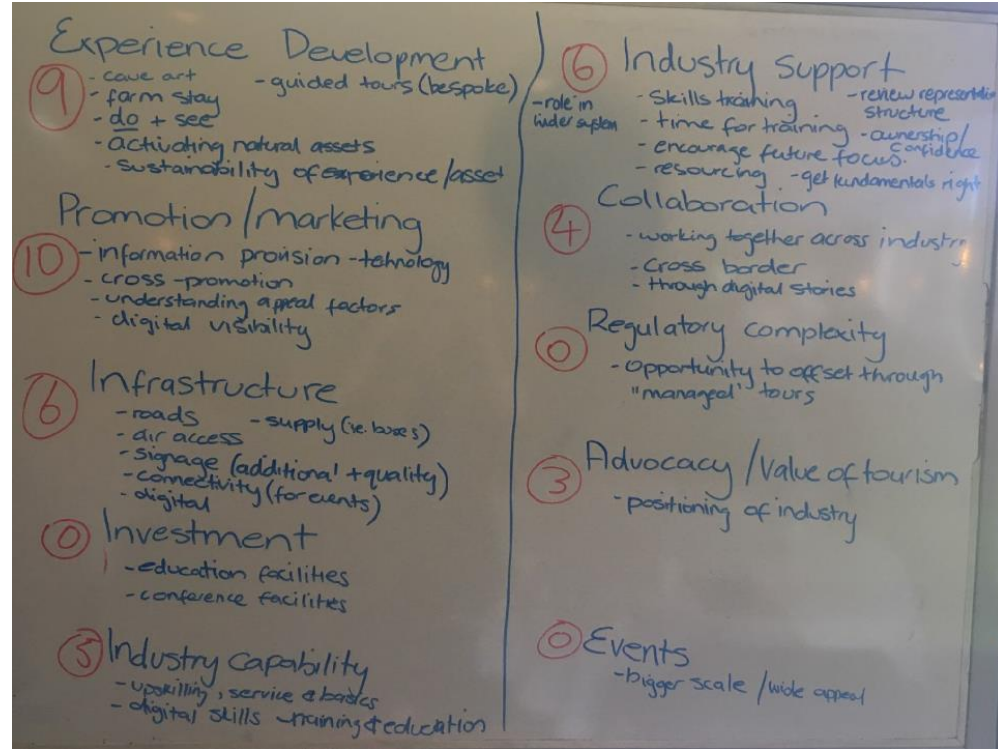 Experience Development
9
- cave art - guided tours (bespoke)
- farm stay
- do + see
- activating natural assets
- sustainability of experience/asset
Promotion/marketing
10
- information provision - tehnology
- cross-promotion
- understanding appeal factors
- digital visibility
Infrastructure
6
- roads - supply (ie. buses)
- air access
- signage (additional + quality)
- connectivity (for events)
- digital
0 Investment
- education facilities
- conference facilities
Industry capability
- upskilling, service & basics
- digital skills - training & education
6 Industry support
- role in wider system
- skills training - review representation structure
- time for training - ownership/confidence
- encourage future focus.
- resourcing - get fundamentals right
Collaboration
4
- working together across industry
- cross border
- through digital stories
Regulatory complexity
0
- opportunity to offset through
"managed" tours
Advocacy/Value of tourism
3
- positioning of industry
0 Events
- bigger scale / wide appeal